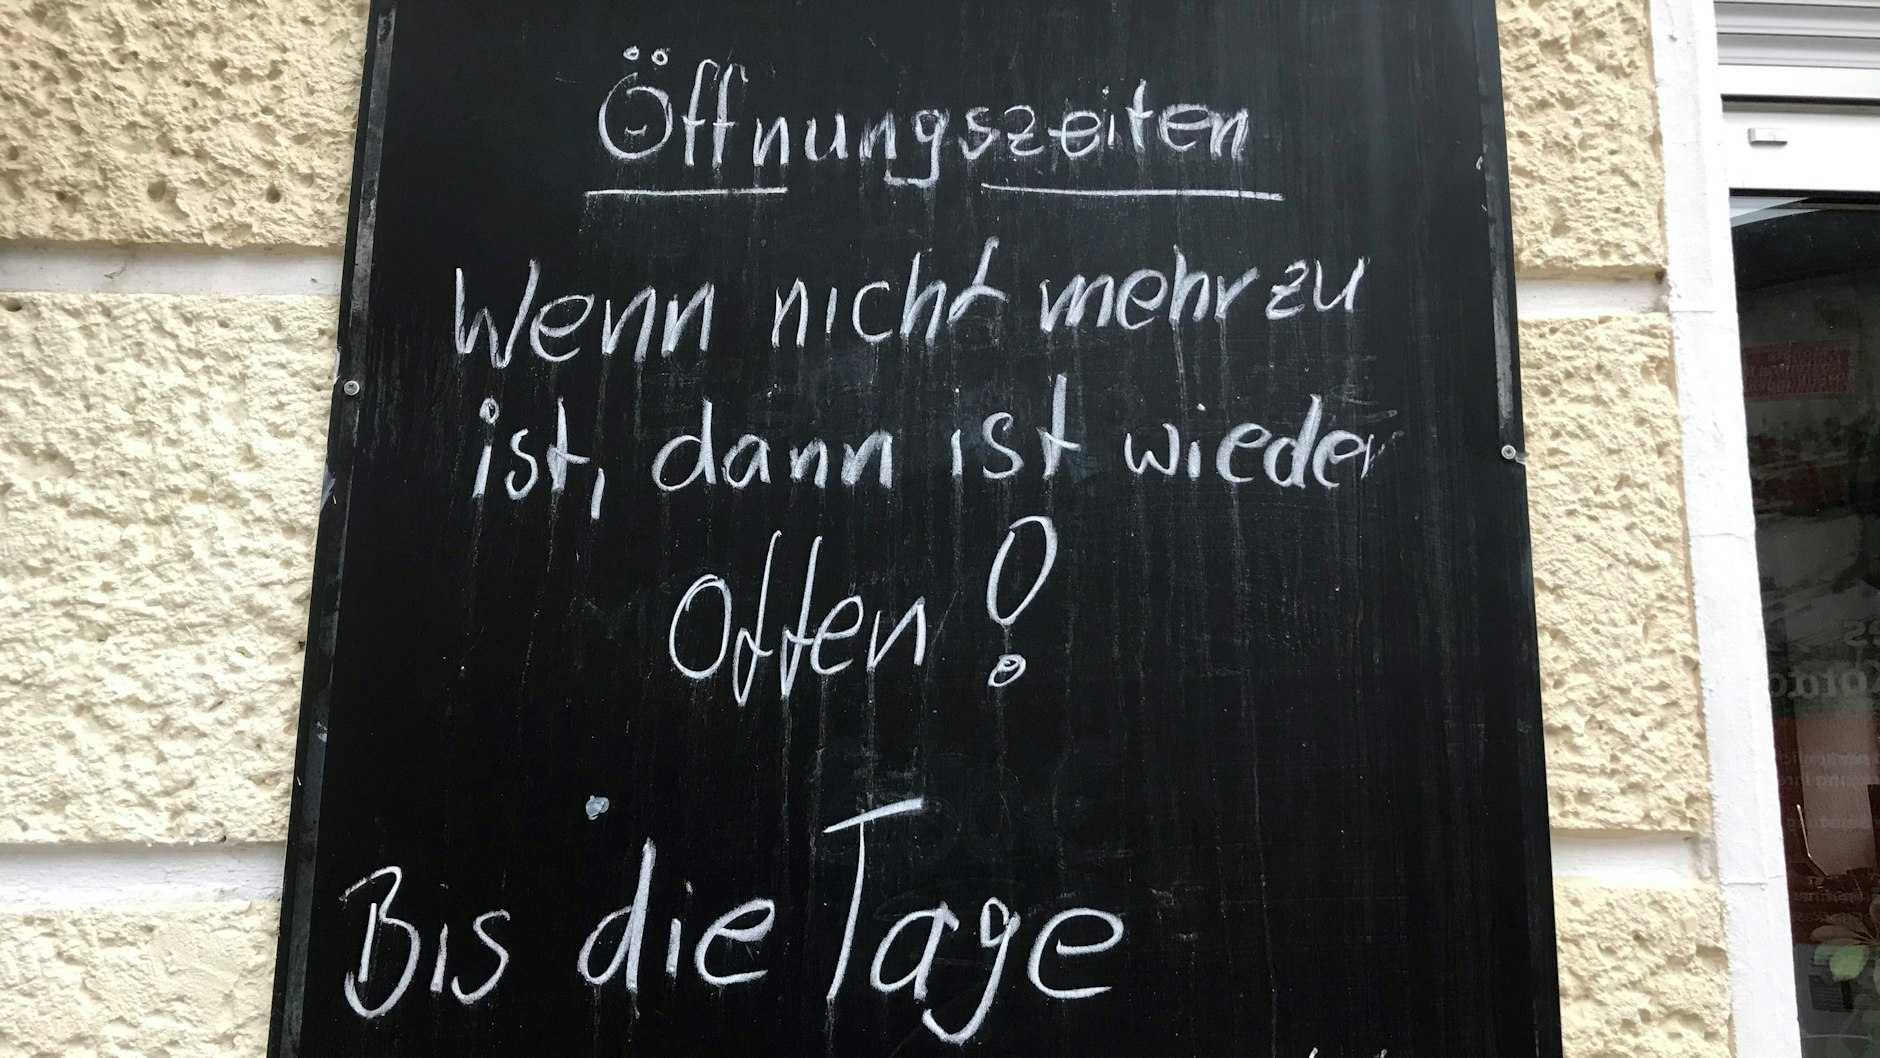 Öffnungszeiten
Wenn nicht mehr zu
ist, dann ist wieder
Offen!
Bis die Tage